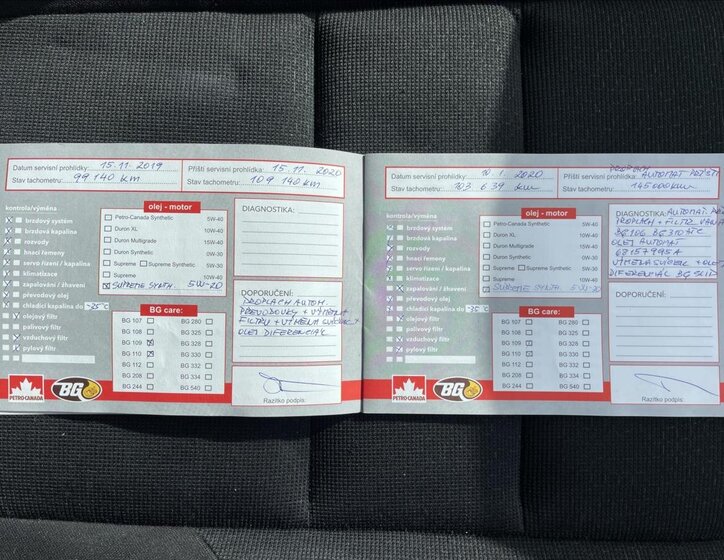 Datum servisní prohlídky: 15.11.2019
Příští servisní prohlídky: 15.11.2020
Stav tachometru: 99 140 km
Stav tachometru: 109 140 km
kontrola/výměna
brzdový systém
brzdová kapalina
rozvody
hnací řemeny
servo řízení / kapalina
klimatizace
zapalování / žhavení
převodový olej
chladící kapalina do -25°C
olejový filtr
palivový filtr
vzduchový filtr
pylový filtr
olej - motor
Petro-Canada Synthetic 5W-40
Duron XL 10W-40
Duron Multigrade 15W-40
Duron Synthetic 0W-30
Supreme Supreme Synthetic 5W-30
Supreme 10W-40
SUPREME SYNTH. 5W-20
BG care:
BG 107 BG 280
BG 108 BG 325
BG 109 BG 328
BG 110 BG 330
BG 112 BG 332
BG 208 BG 334
BG 244 BG 540
DIAGNOSTIKA:
DOPORUČENÍ:
PROPLACH AUTOM.
PŘEVODOVKY + VÝMĚNA
FILTRU + VÝMĚNA SVÍČEK +
OLEJ DIFERENCIÁL
Razítko podpis:
PETRO-CANADA
BG
Datum servisní prohlídky: 10.1.2020
PROPLACH AUTOMAT
Stav tachometru: 103 639 km
145000km
kontrola/výměna
brzdový systém
brzdová kapalina
rozvody
hnací řemeny
servo řízení / kapalina
klimatizace
zapalování / žhavení
převodový olej
chladící kapalina do -25°C
olejový filtr
palivový filtr
vzduchový filtr
pylový filtr
olej - motor
Petro-Canada Synthetic 5W-40
Duron XL 10W-40
Duron Multigrade 15W-40
Duron Synthetic 0W-30
Supreme Supreme Synthetic 5W-30
Supreme 10W-40
SUPREME SYNTH. 5W-20
BG care:
BG 107 BG 280
BG 108 BG 325
BG 109 BG 328
BG 110 BG 330
BG 112 BG 332
BG 208 BG 334
BG 244 BG 540
DIAGNOSTIKA: AUTOMAT.
PROPLACH + FILTR
BG 106 BG 310 ATC
OLEJ AUTOMAT
68157995A
VÝMĚNA SVÍČEK + OLEJ
DIFERENCIÁL BG
DOPORUČENÍ:
Razítko podpis:
PETRO-CANADA
BG